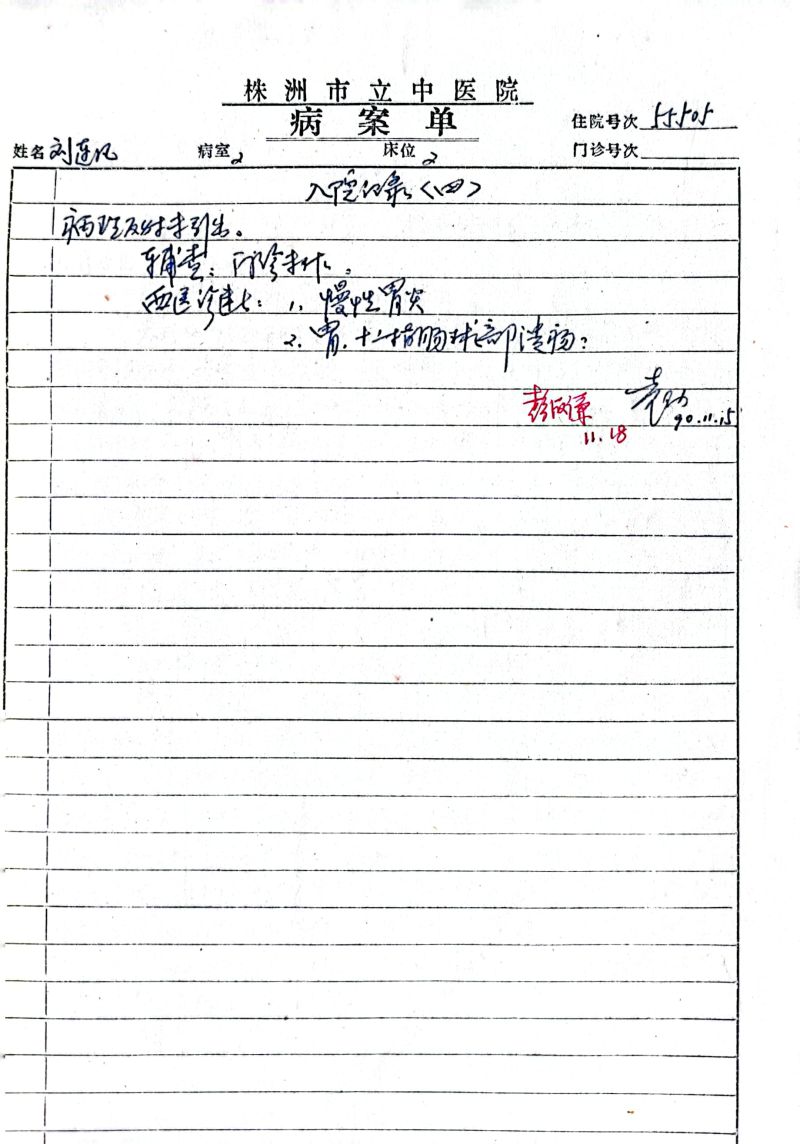 株洲市立中医院
病案单
住院号次 55505
姓名 刘连凡 病室 2 床位 2 门诊号次
入院记录（四）
病理反射未引出。
辅查：门诊未作。
西医诊断：1、慢性胃炎
2、胃、十二指肠球部溃疡？
11.18 90.11.15